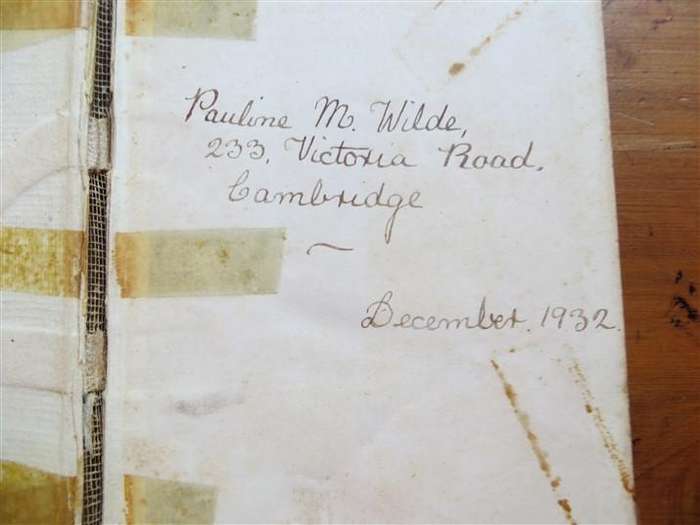 Pauline M. Wilde,
233, Victoria Road,
Cambridge
December. 1932.